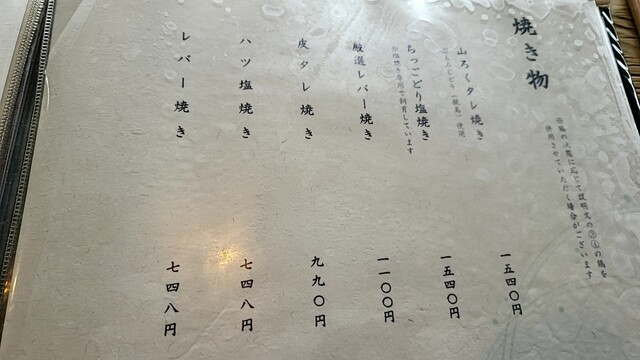 焼き物
※鶏の状態に応じて説明文の③④の鶏を
併用させていただく場合がございます
山ろくタレ焼き
使用
一五四〇円
ちっこどり塩焼き
で飼育しています
一五四〇円
厳選レバー焼き
一一〇〇円
皮タレ焼き
九九〇円
ハツ塩焼き
七四八円
レバー焼き
七四八円